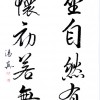 坐自然有
懷初若無